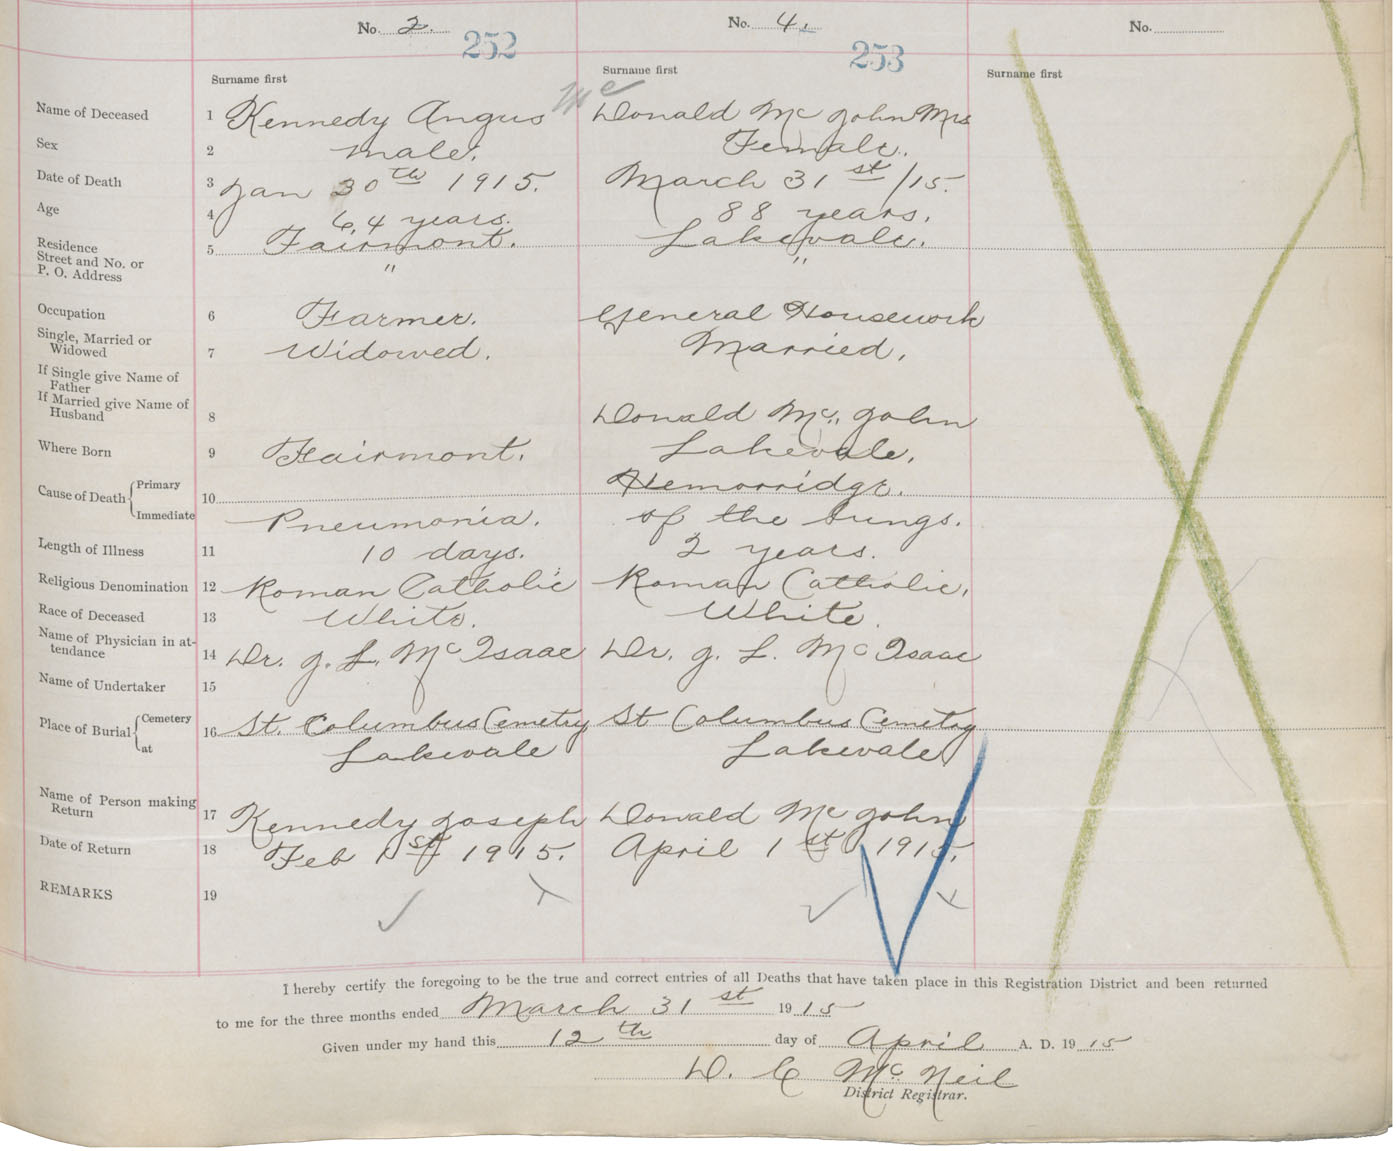 No. 2. No. 4. No.
252 253
Surname first Surname first Surname first
Mc
Name of Deceased 1 Kennedy Angus Donald Mc John Mrs
Sex 2 Male. Female.
Date of Death 3 Jan 30th 1915. March 31st /15.
Age 4 64 years. 88 years.
Residence 5 Fairmont. Lakevale.
Street and No. or
P. O. Address " "
Occupation 6 Farmer. General Housework
Single, Married or
Widowed 7 Widowed. Married.
If Single give Name of
Father
If Married give Name of
Husband 8 Donald Mc. John
Where Born 9 Fairmont. Lakevale.
Cause of Death { Primary 10 Hemorridge.
Immediate Pneumonia. of the lungs.
Length of Illness 11 10 days. 2 years.
Religious Denomination 12 Roman Catholic Roman Catholic.
Race of Deceased 13 White. White.
Name of Physician in at-
tendance 14 Dr. J. L. McIsaac Dr. J. L. McIsaac
Name of Undertaker 15
Place of Burial { Cemetery 16 St. Columbus Cemetry St Columbus Cemetry
at Lakevale Lakevale
Name of Person making
Return 17 Kennedy Joseph Donald Mc John
Date of Return 18 Feb 1st 1915. April 1st 1915.
REMARKS 19
I hereby certify the foregoing to be the true and correct entries of all Deaths that have taken place in this Registration District and been returned
to me for the three months ended March 31st 1915
Given under my hand this 12th day of April A. D. 1915
D. C McNeil
District Registrar.